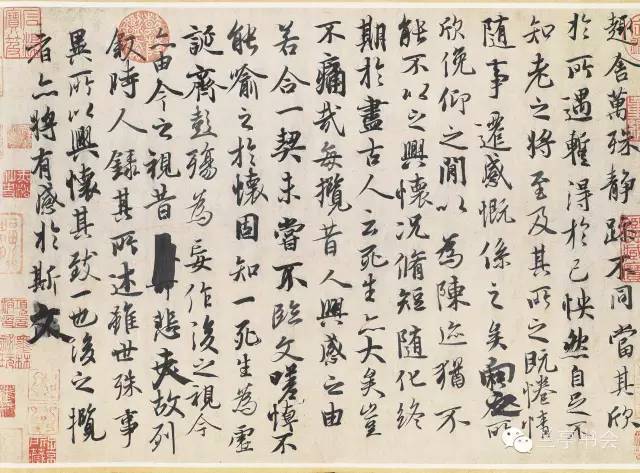 趣舍萬殊静躁不同當其欣
於所遇蹔得於己怏然自足不
知老之將至及其所之既惓情
随事遷感慨係之矣向之所
欣俛仰之閒以為陳迹猶不
能不以之興懷况脩短随化終
期於盡古人云死生亦大矣豈
不痛哉每攬昔人興感之由
若合一契未嘗不臨文嗟悼不
能喻之於懷固知一死生為虛
誕齊彭殤為妄作後之視今
亦由今之視昔悲夫故列
敘時人錄其所述雖世殊事
異所以興懷其致一也後之攬
者亦將有感於斯文
兰亭书会